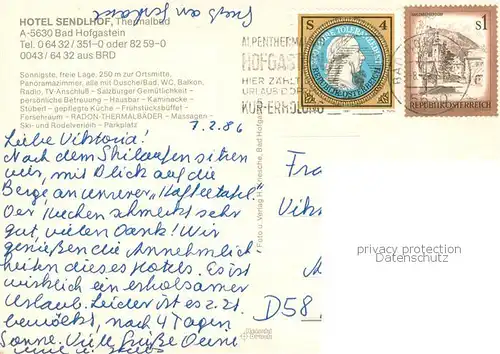 HOTEL SENDLHOF, Thermalbad
A-5630 Bad Hofgastein
Tel. 0 64 32 / 351-0 oder 82 59-0
0043 / 64 32 aus BRD
Sonnigste, freie Lage, 250 m zur Ortsmitte,
Panoramazimmer, alle mit Dusche/Bad, WC, Balkon,
Radio, TV-Anschluß – Salzburger Gemütlichkeit –
persönliche Betreuung – Hausbar – Kaminecke –
Stüberl – gepflegte Küche – Frühstücksbüffet –
Fersehraum – RADON-THERMALBÄDER – Massagen –
Ski- und Rodelverleih – Parkplatz
7.2.86
Liebe Viktoria!
Nach dem Skilaufen sitzen
wir, mit Blick auf die
Berge an unserer „Kaffeetafel".
Der Kuchen schmeckt sehr
gut, vielen Dank! Wir
genießen die Annehmlich
keiten dieses Hotels. Es ist
wirklich ein erholsamer
Urlaub. Leider ist es z.Zt.
bewölkt, nach 4 Tagen
Sonne. Viele Grüße Deine
ALPENTHERMAL
HOFGAST
HIER ZÄHLT
URLAUB DOPP
KUR-ERHOLUNG
S 4
REPUBLIK ÖSTERREICH
S1
REPUBLIK ÖSTERREICH
Foto u. Verlag
Bad Hofga
Fra
Vik
D58
privacy protection
Datenschutz